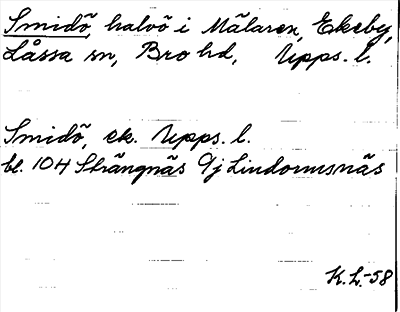 Smidö, halvö i Mälaren, Ekeby,
Låssa sn, Bro hd, Upps. l.
Smidö, ek. Upps. l.
bl. 10H Strängnäs 9j Lindormsnäs
K.L.-58